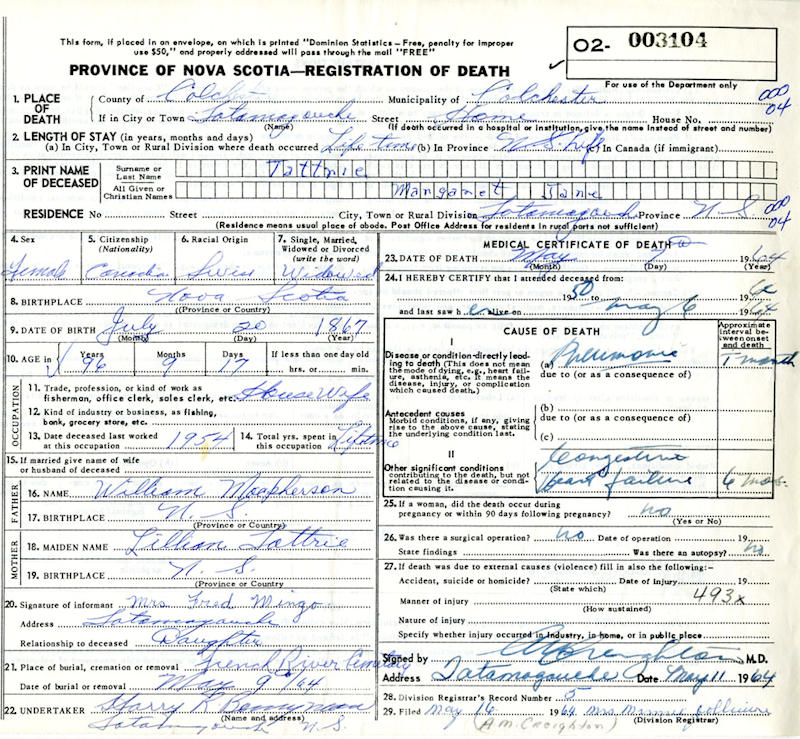 This form, if placed in an envelope, on which is printed "Dominion Statistics - Free, penalty for improper
use $50," and properly addressed will pass through the mail "FREE"
O2- 003104
PROVINCE OF NOVA SCOTIA—REGISTRATION OF DEATH
For use of the Department only
1. PLACE OF DEATH County of Colch Municipality of Colchester 000
If in City or Town Tatamagouche Street Home House No. 04
(Name) (If death occurred in a hospital or institution, give the name instead of street and number)
2. LENGTH OF STAY (in years, months and days)
(a) In City, Town or Rural Division where death occurred Life time (b) In Province N.S. Life (c) In Canada (if immigrant)
3. PRINT NAME OF DECEASED Surname or Last Name Tattrie
All Given or Christian Names Margaret Jane
RESIDENCE No Street City, Town or Rural Division Tatamagouche Province N.S. 000 04
(Residence means usual place of abode. Post Office Address for residents in rural parts not sufficient)
4. Sex 5. Citizenship (Nationality) 6. Racial Origin 7. Single, Married, Widowed or Divorced (write the word)
Female Canadia Swiss Widowed
8. BIRTHPLACE Nova Scotia
(Province or Country)
9. DATE OF BIRTH July 20 1867
(Month) (Day) (Year)
10. AGE in Years Months Days If less than one day old
96 9 17 hrs. or min.
OCCUPATION
11. Trade, profession, or kind of work as fisherman, office clerk, sales clerk, etc. House Wife
12. Kind of industry or business, as fishing, bank, grocery store, etc.
13. Date deceased last worked at this occupation 1954 14. Total yrs. spent in this occupation Lifetime
15. If married give name of wife or husband of deceased
FATHER
16. NAME William Macpherson
17. BIRTHPLACE N.S.
(Province or Country)
MOTHER
18. MAIDEN NAME Lillian Tattrie
19. BIRTHPLACE N.S.
(Province or Country
20. Signature of informant Mrs Fred Mingo
Address Tatamagouche
Relationship to deceased Daughter
21. Place of burial, cremation or removal French River Cemetary
Date of burial or removal May 9 /64
22. UNDERTAKER Harry R
(Name and address)
Tatamagouche N.S.
MEDICAL CERTIFICATE OF DEATH
23. DATE OF DEATH May 7 1964
(Month) (Day) (Year)
24. I HEREBY CERTIFY that I attended deceased from:
1950 to 64
and last saw h er alive on May 6 1964
CAUSE OF DEATH
Approximate interval between onset and death
I
Disease or condition directly leading to death (This does not mean the mode of dying, e.g., heart failure, asthenia, etc. It means the disease, injury, or complication which caused death.)
(a) Pneumonia 1 month
due to (or as a consequence of)
Antecedent causes
Morbid conditions, if any, giving rise to the above cause, stating the underlying condition last.
(b)
due to (or as a consequence of)
(c)
II
Other significant conditions
contributing to the death, but not related to the disease or condition causing it.
Congestive
Heart failure 6 mos.
25. If a woman, did the death occur during
pregnancy or within 90 days following pregnancy? no
(Yes or No)
26. Was there a surgical operation? no Date of operation 19
State findings Was there an autopsy? no
27. If death was due to external causes (violence) fill in also the following:-
Accident, suicide or homicide? Date of injury 19
(State which)
Manner of injury 493x
(How sustained)
Nature of injury
Specify whether injury occurred in industry, in home, or in public place
Signed by M.D.
Address Tatamagouche Date May 11 1964
28. Division Registrar's Record Number 5
29. Filed May 16 1964 Mrs Minnie
(Division Registrar)
(A M. Creighton)